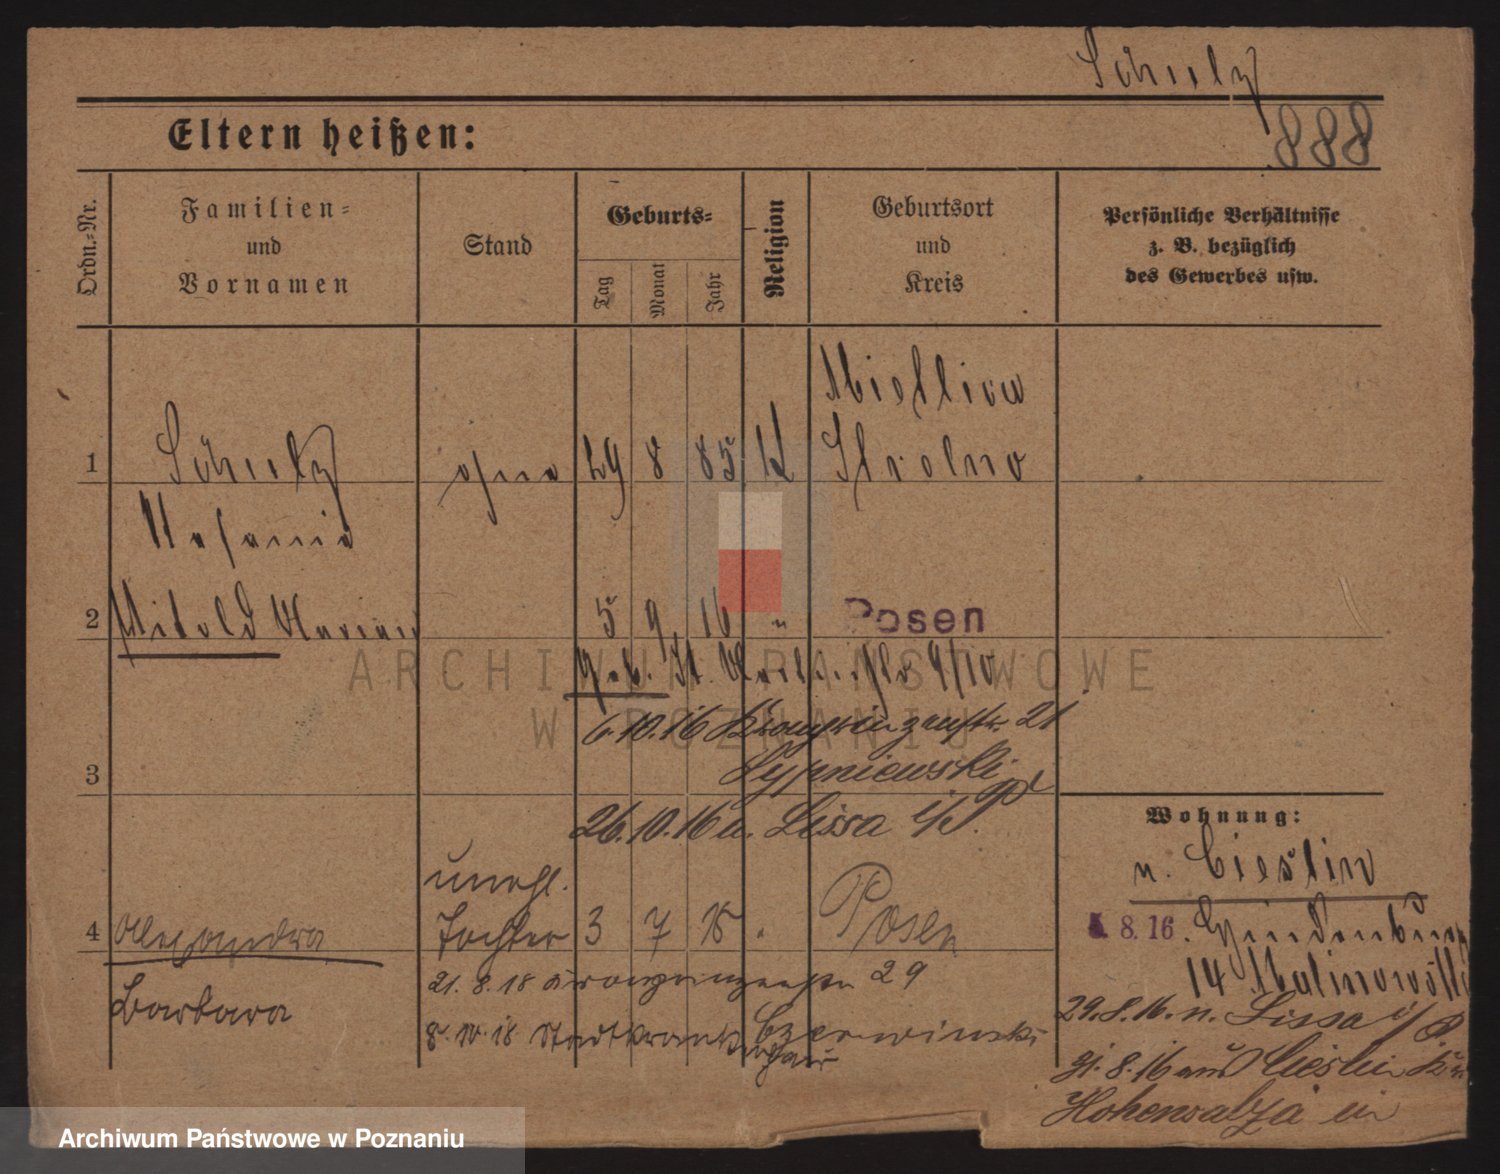 Schulz
888
Eltern heißen:
Ordn.=Nr.
Familien=
und
Vornamen
Stand
Geburts=
Tag
Monat
Jahr
Religion
Geburtsort
und
Kreis
Persönliche Verhältnisse
z. B. bezüglich
des Gewerbes usw.
1
Schulz
ohne
29 8 85 k
Strelno
2
Witold Marian
5 9 16 "
Posen
geb. St.
9/10
6.10.16 Kronprinzenstr. 21
Sypniewski
3
26.10.16 n. Lissa i/P.
Wohnung:
n. Cieslin
unehl.
4
Alexandra
Tochter
3 7 18
Posen
8.16
Hindenburg
14 Malinowski
Barbara
21.8.18 Kronprinzenstr 29
29.8.16. n. Lissa i/P
8.10.18 Stadtkrankenhaus
Czerwinski
31.8.16 aus Cieslin Kr.
Hohensalza in
ARCHIWUM PAŃSTWOWE
W POZNANIU
Archiwum Państwowe w Poznaniu